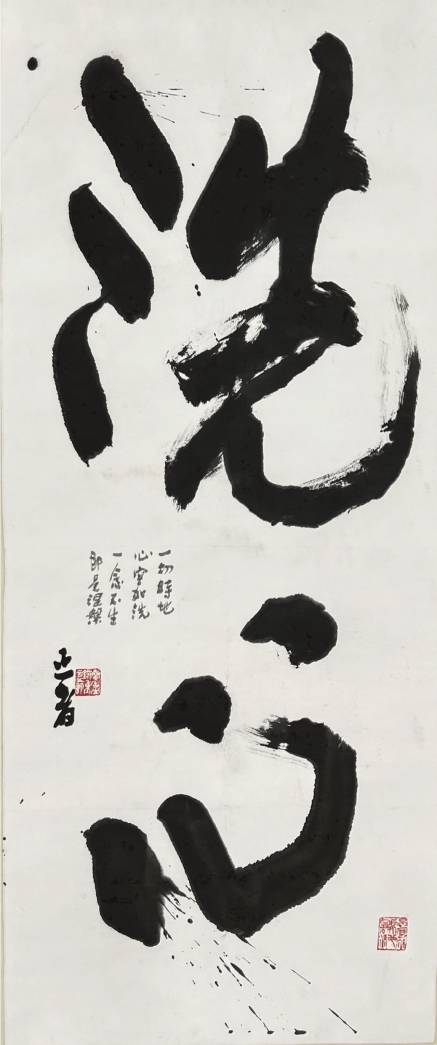 洗心
一切時地
心空如洗
一念不生
即是涅槃